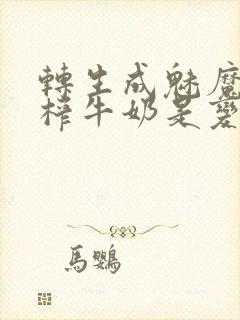 轉生成魅魔
榨牛奶是變
馬鸚